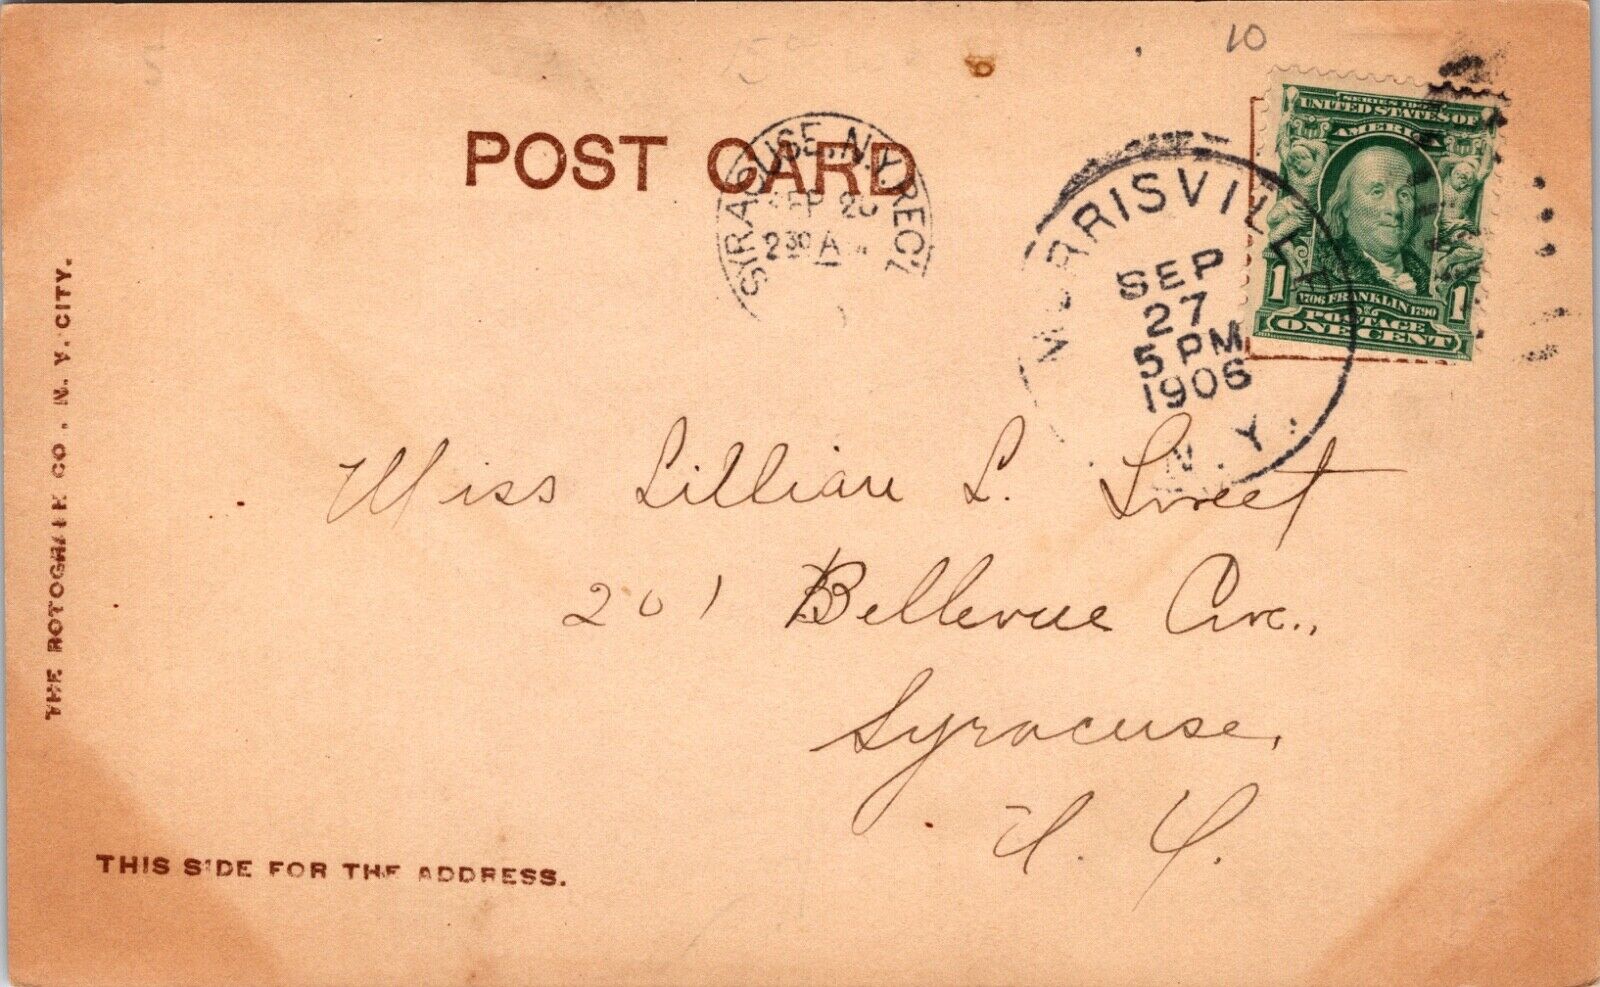 10
POST CARD
SYRACUSE, N.Y. REC'
SEP 2
2 30 A
MORRISVILLE
SEP
27
5 PM
1906
N.Y.
SERIES 1902
UNITED STATES OF
AMERICA
1 1
1706 FRANKLIN 1790
POSTAGE
ONE CENT
THE ROTOGRAPH CO., N. Y. CITY.
Miss Lillian L. Sweet
201 Bellevue Ave.,
Syracuse,
N. Y.
THIS SIDE FOR THE ADDRESS.